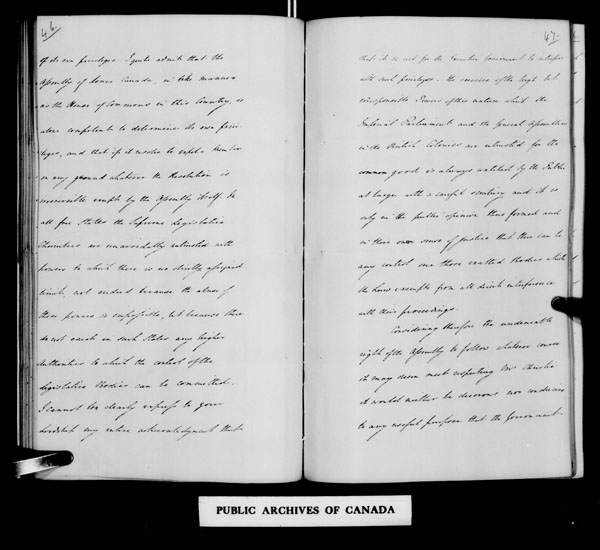 46.
of its own privileges. I quite admit that the
Assembly of Lower Canada, in like manner
as the House of Commons in this Country, is
alone competent to determine its own privi-
leges, and that if it resolve to expel a Member
on any ground whatever the Resolution is
irrevocable except by the Assembly itself. In
all free States the Supreme Legislative
Chambers are unavoidably entrusted with
powers to which there is no strictly assigned
limit, not indeed because the abuse of
those powers is impossible, but because there
do not exist in such States any higher
Authorities to which the control of the
Legislative Bodies can be committed.
I cannot too clearly express to your
Lordship my entire acknowledgment that
47.
that it is not for the Executive Government to interfere
with such privileges. The exercise of the high but
irresponsible Powers of this nature which the
Imperial Parliament and the General Assemblies
in the British Colonies are entrusted for the
common good is always watched by the Public
at large with a careful scrutiny and it is
only in the public opinion thus formed and
in their own sense of justice that there can be
any control over those exalted Bodies which
the Law exempts from all direct interference
with their proceedings.
Considering therefore the undeniable
right of the Assembly to follow whatever course
it may deem meet respecting Mr Christie
it would neither be decorous nor conducive
to any useful purpose that the Government
PUBLIC ARCHIVES OF CANADA